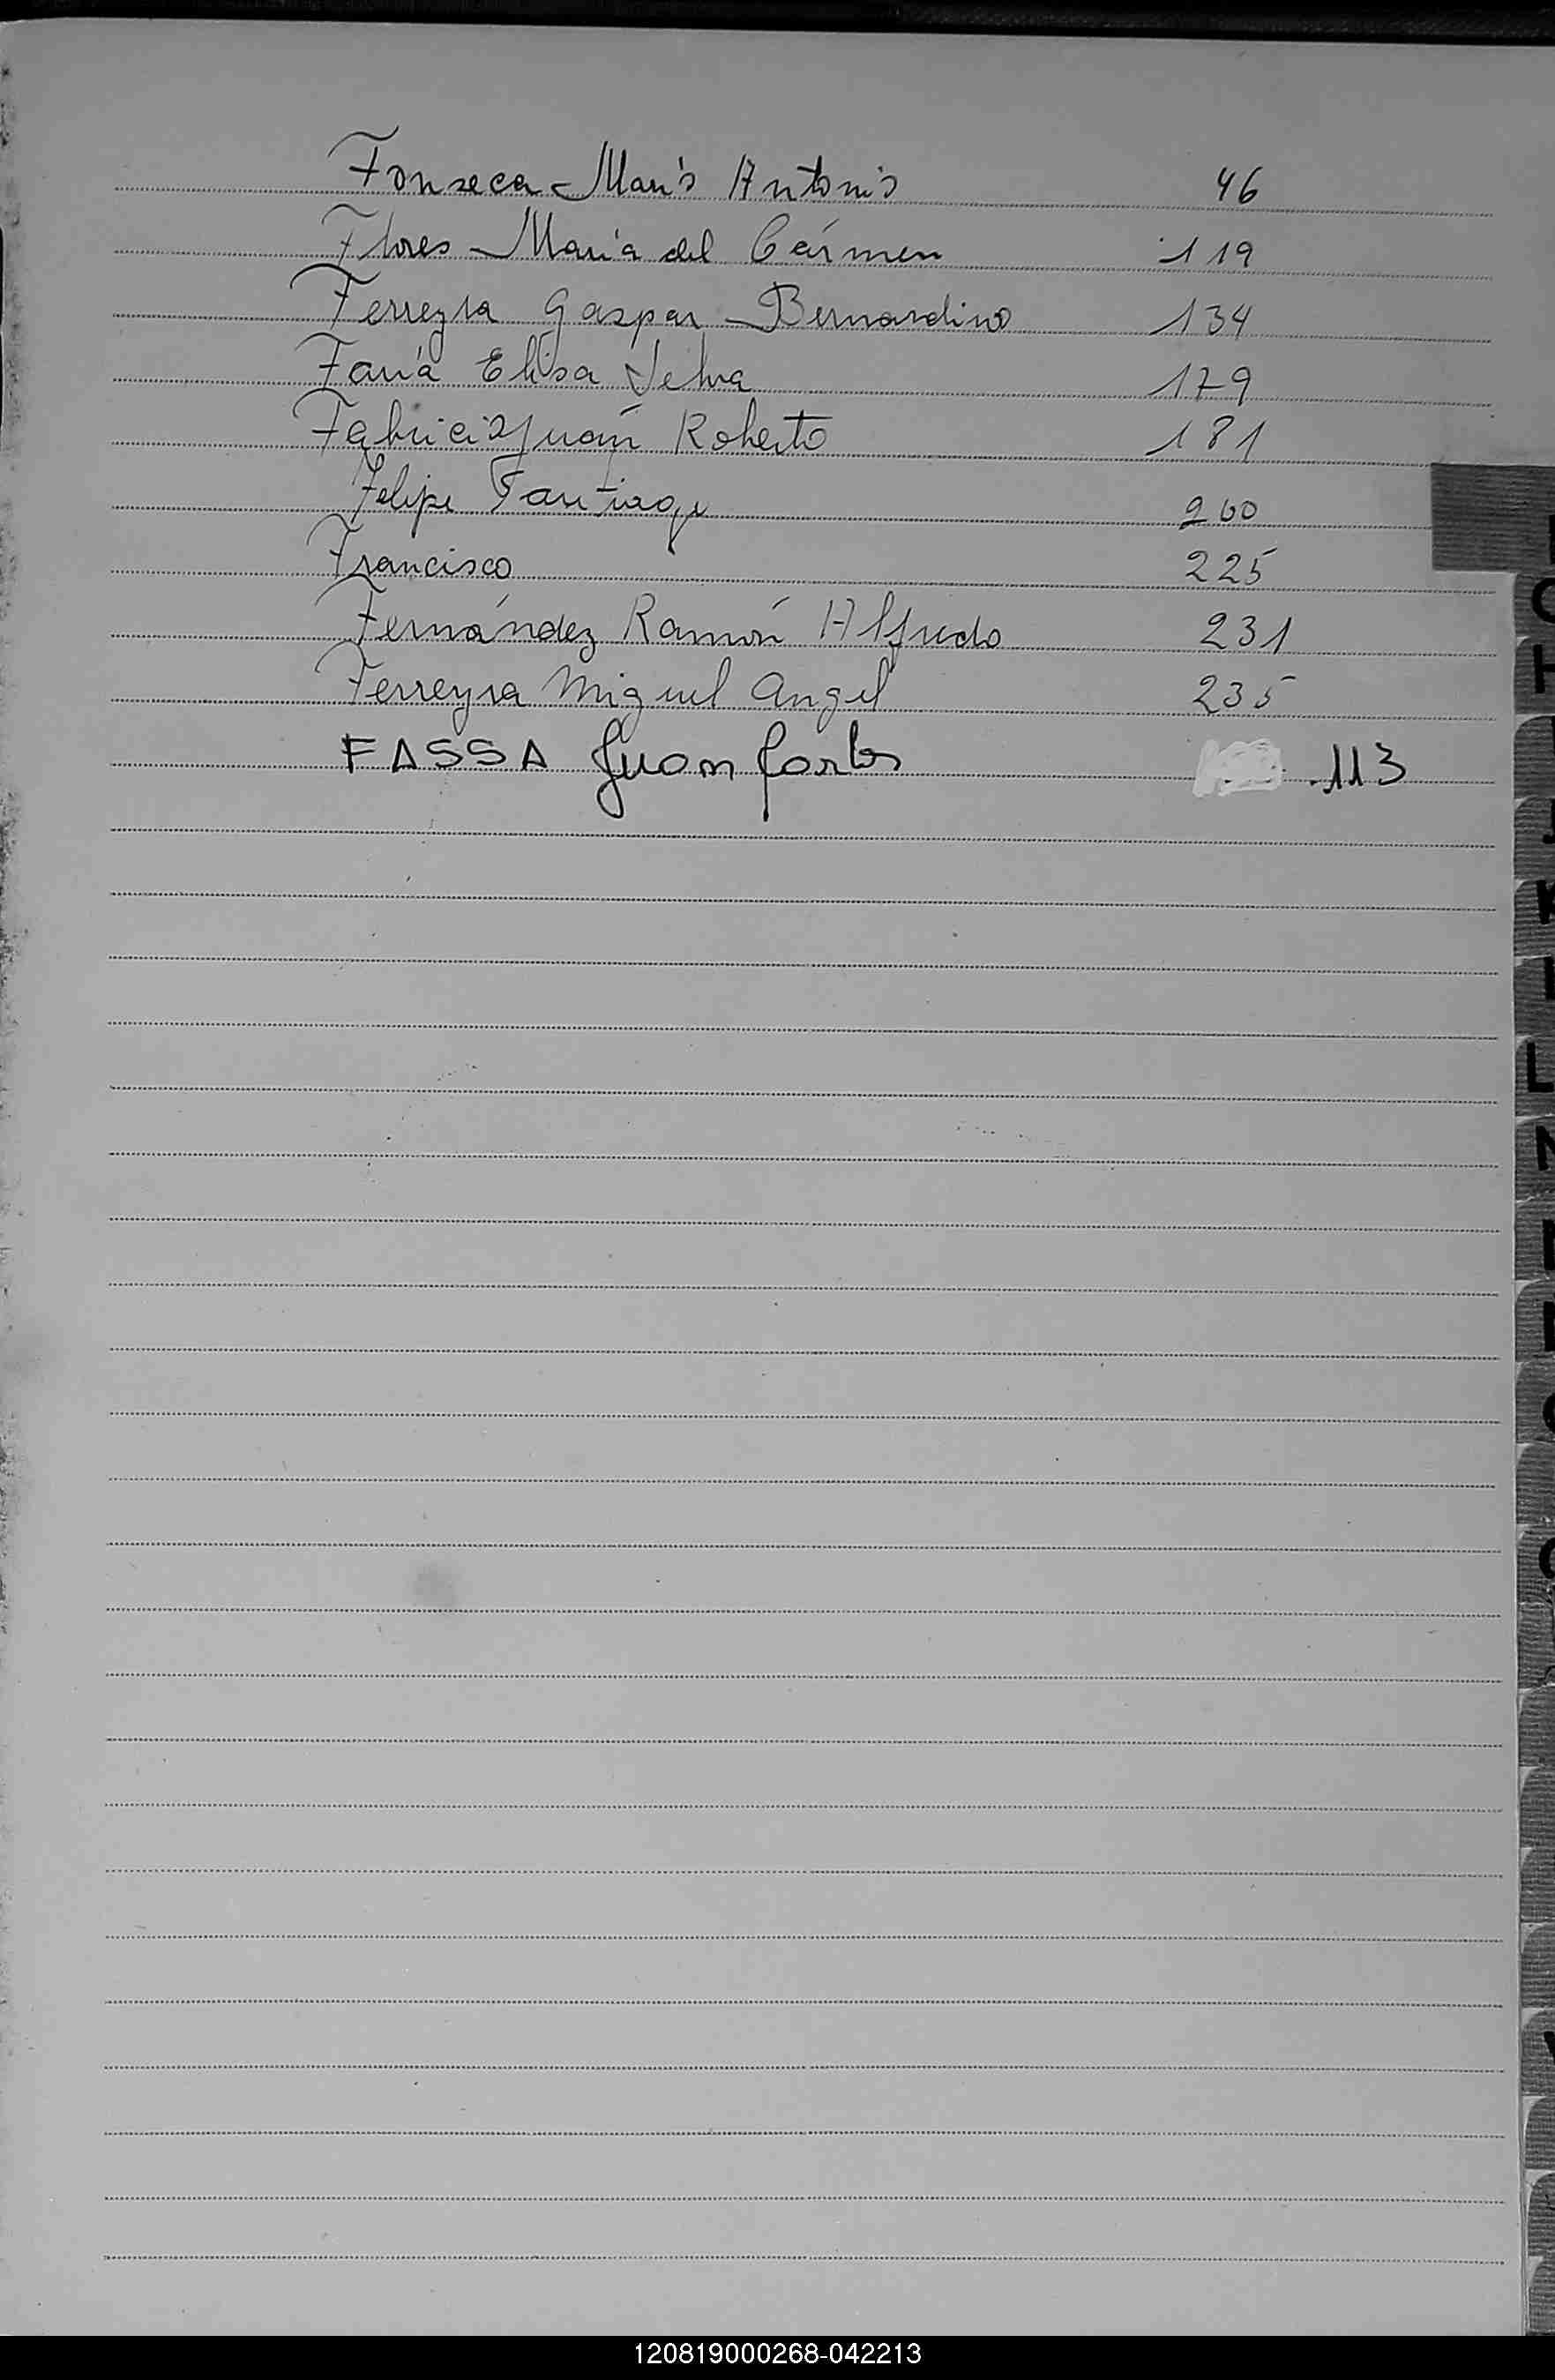 Fonseca Mario Antonio 46
Flores María del Cármen 119
Ferreyra Gaspar Bernardino 134
Faría Elisa Selva 179
Fabricio Juan Roberto 181
Felipe Santiago 260
Francisco 225
Fernández Ramón Alfredo 231
Ferreyra Miguel Angel 235
FASSA Juan Carlos 113
H
J
K
L
120819000268-042213